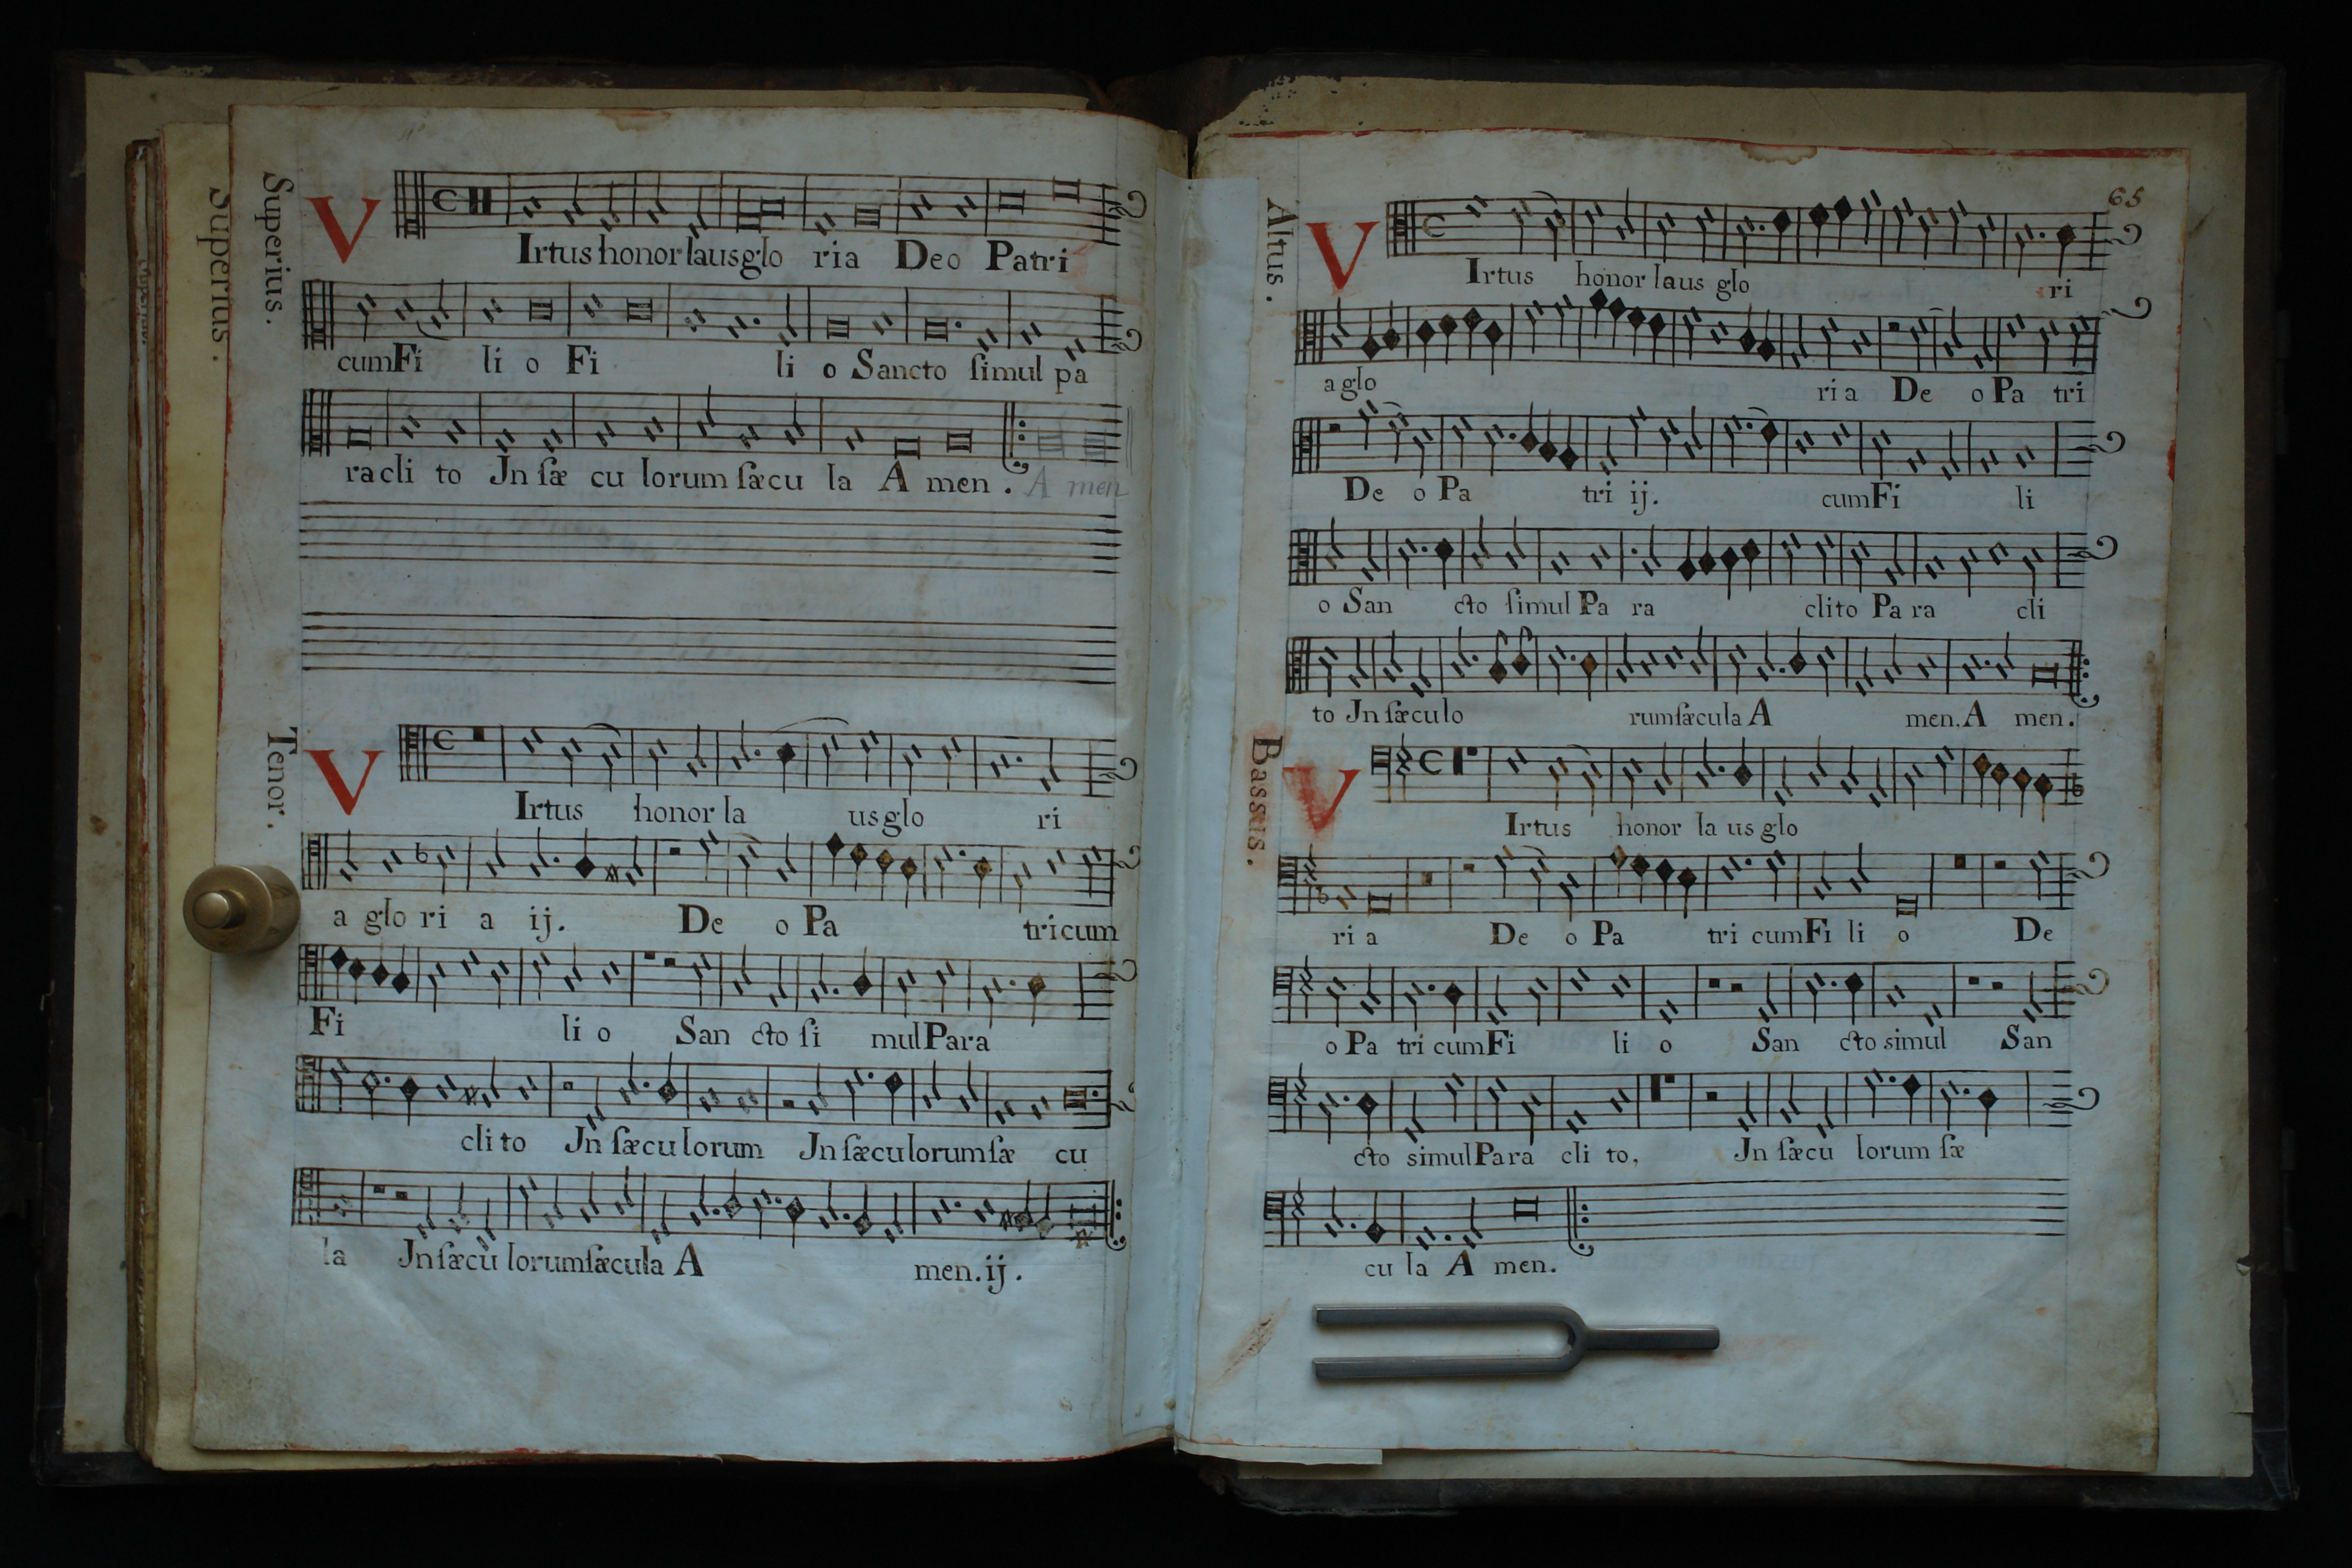 Superius.
Superius.
VIrtus honor laus glo ria Deo Patri
cum Fi li o Fi li o Sancto ſimul pa
racli to Jn ſæ cu lorum ſæcu la A men. A men
Tenor.
VIrtus honor la us glo ri
a glo ri a ij. De o Pa tri cum
Fi li o San cto ſi mul Para
cli to Jn ſæcu lorum Jn ſæculorum ſæ cu
la Jn ſæcu lorum ſæcula A men. ij.
65
Altus.
VIrtus honor laus glo ri
a glo ri a De o Pa tri
De o Pa tri ij. cum Fi li
o San cto ſimul Pa ra clito Pa ra cli
to Jn ſæculo rum ſæcula A men. A men.
Bassus.
VIrtus honor la us glo
ri a De o Pa tri cum Fi li o De
o Pa tri cum Fi li o San cto simul San
cto simul Para cli to, Jn ſæcu lorum ſæ
cu la A men.